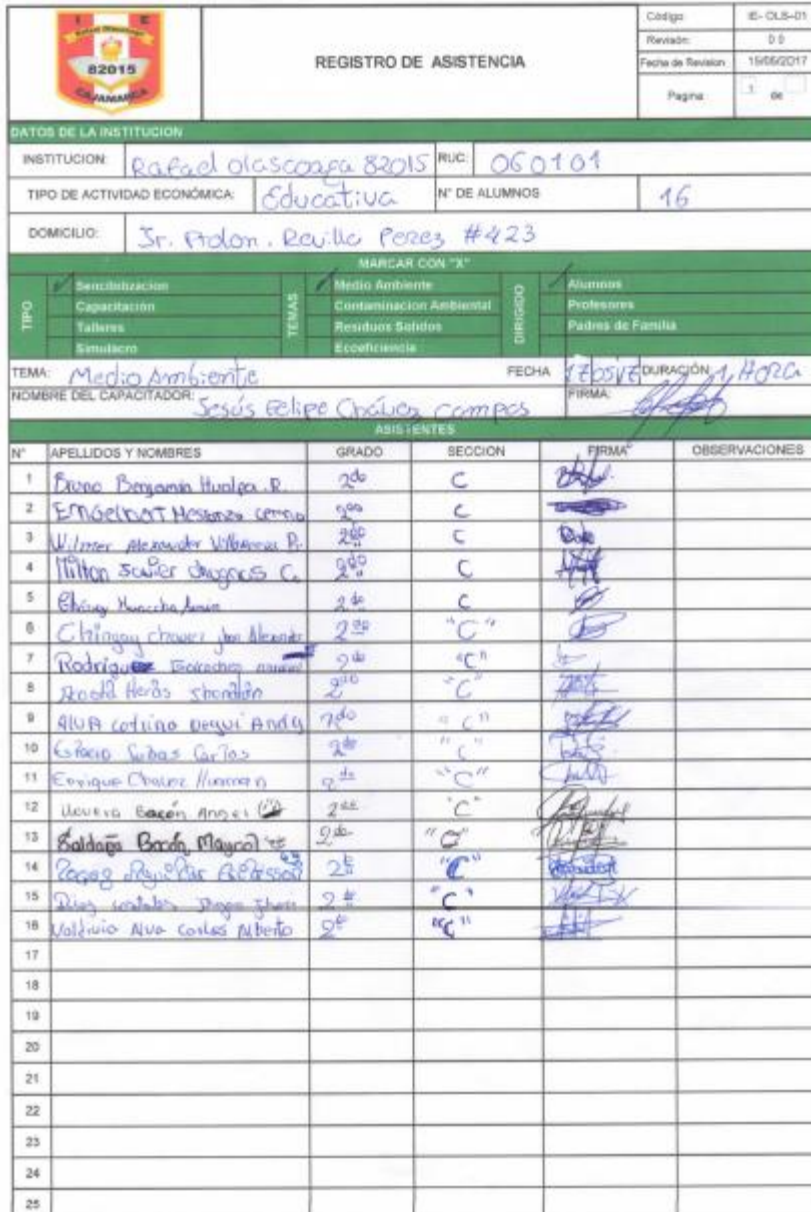 I E
82015
CAJAMARCA
REGISTRO DE ASISTENCIA
Código: IE-OLS-01
Revisión: 0 0
Fecha de Revision 15/05/2017
Pagina: 1 de
DATOS DE LA INSTITUCION
INSTITUCION: Rafael Olascoaga 82015 RUC: 060101
TIPO DE ACTIVIDAD ECONÓMICA: Educativa N° DE ALUMNOS 16
DOMICILIO: Jr. Prolon. Revilla Perez #423
MARCAR CON "X"
TIPO
Sencibilizacion
Capacitación
Talleres
Simulacro
TEMAS
Medio Ambiente
Contaminacion Ambiental
Residuos Solidos
Ecoeficiencia
DIRIGIDO
Alumnos
Profesores
Padres de Familia
TEMA: Medio Ambiente FECHA 17/05/17 DURACIÓN: 1 HORA
NOMBRE DEL CAPACITADOR: Jesús Felipe Chávez Campos FIRMA:
ASISTENTES
N° APELLIDOS Y NOMBRES GRADO SECCION FIRMA OBSERVACIONES
1 Bruno Benjamin Hualpa. R. 2do C
2 2do C
3 Wilmer Alexander 2do C
4 Milton C. 2do C
5 Chávez 2do C
6 Chingay chavez Alexander 2do "C"
7 Rodriguez 2do "C"
8 Heras 2do "C"
9 AlVA Andy 2do "C"
10 Carlos 2do "C"
11 Enrique Chavez Huaman 2do "C"
12 Bacón Angel 2do "C"
13 Saldaña Bacón Maycol 2do "C"
14 "C"
15 "C"
16 Valdivia Alva Carlos Alberto "C"
17
18
19
20
21
22
23
24
25